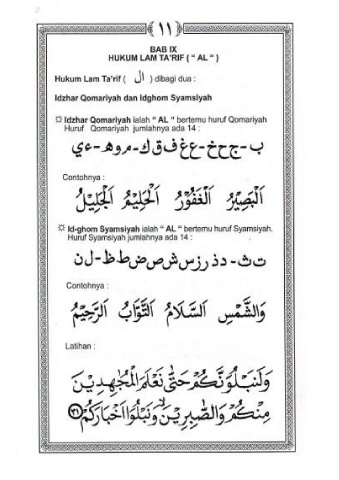 ١١
BAB IX
HUKUM LAM TA'RIF ( “ AL “ )
Hukum Lam Ta'rif ( ال ) dibagi dua :
Idzhar Qomariyah dan Idghom Syamsiyah
Idzhar Qomariyah ialah “ AL “ bertemu huruf Qomariyah
Huruf Qomariyah jumlahnya ada 14 :
ب - ج ح خ - ع غ ف ق ك - م و ه - ء ي
Contohnya :
اَلْبَصِيْرُ اَلْغَفُوْرُ اَلْحَلِيْمُ اَلْجَلِيْلُ
Id-ghom Syamsiyah ialah “ AL “ bertemu huruf Syamsiyah.
Huruf Syamsiyah jumlahnya ada 14 :
ت ث - د ذ ر ز س ش ص ض ط ظ - ل ن
Contohnya :
وَالشَّمْسِ اَلسَّلَامُ اَلتَّوَّابُ اَلرَّحِيْمُ
Latihan :
وَلَنَبْلُوَنَّكُمْ حَتّٰى نَعْلَمَ الْمُجٰهِدِيْنَ
مِنْكُمْ وَالصّٰبِرِيْنَۙ وَنَبْلُوَا۟ اَخْبَارَكُمْ ٣١